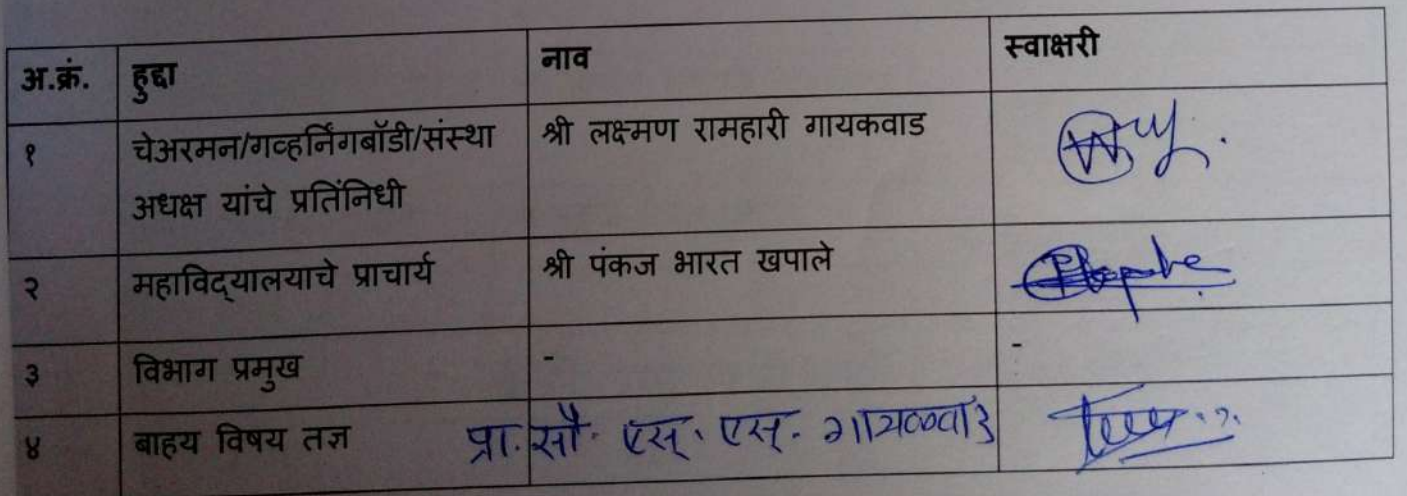 अ.क्रं. हुद्दा नाव स्वाक्षरी
१ चेअरमन/गव्हर्निंगबॉडी/संस्था श्री लक्ष्मण रामहारी गायकवाड
अधक्ष यांचे प्रतिंनिधी
२ महाविद्यालयाचे प्राचार्य श्री पंकज भारत खपाले
३ विभाग प्रमुख - -
४ बाहय विषय तज्ञ प्रा. सौ. एस्. एस्. गायकवाड